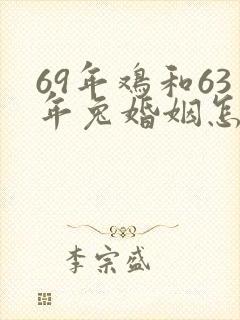 69年鸡和63
年兔婚姻怎
李宗盛